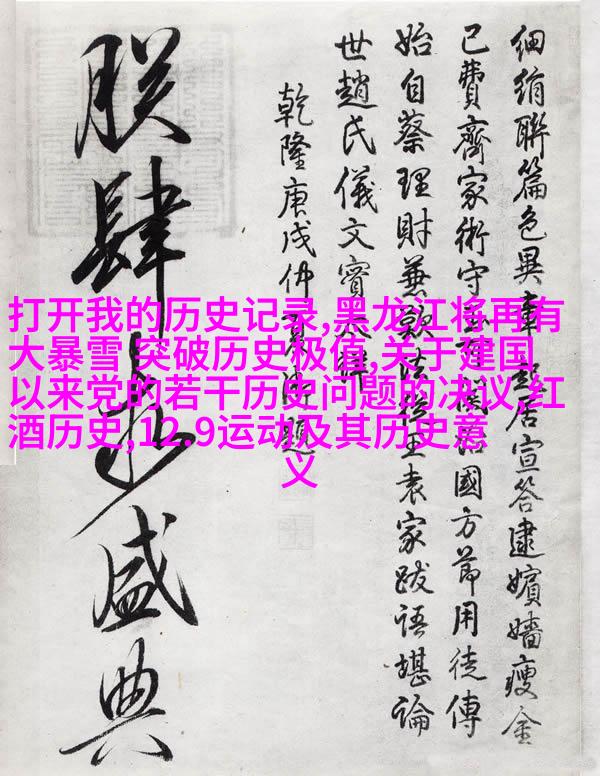 打开我的历史记录,黑龙江将再有
大暴雪 突破历史极值,关于建国
以来党的若干历史问题的决议,红
酒历史,12.9运动及其历史意
义
細絹聯篇色異車起居宣答逮嬪嬙瘦金
已費齊家術守國方節用徒傳
始自蔡理財兼袁家跋語堪論
世趙氏儀文實
乾隆庚戌仲夏題
盛典